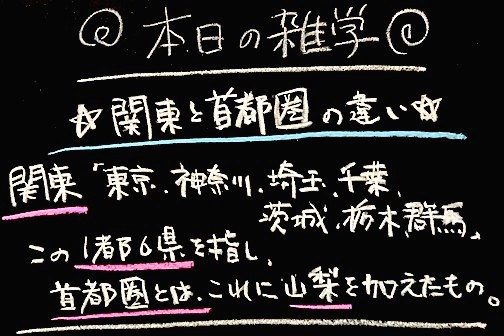 本日の雑学
☆関東と首都圏の違い☆
関東「東京、神奈川、埼玉、千葉、
茨城、栃木群馬、
この1都6県を指し、
首都圏とは、これに山梨を加えたもの。